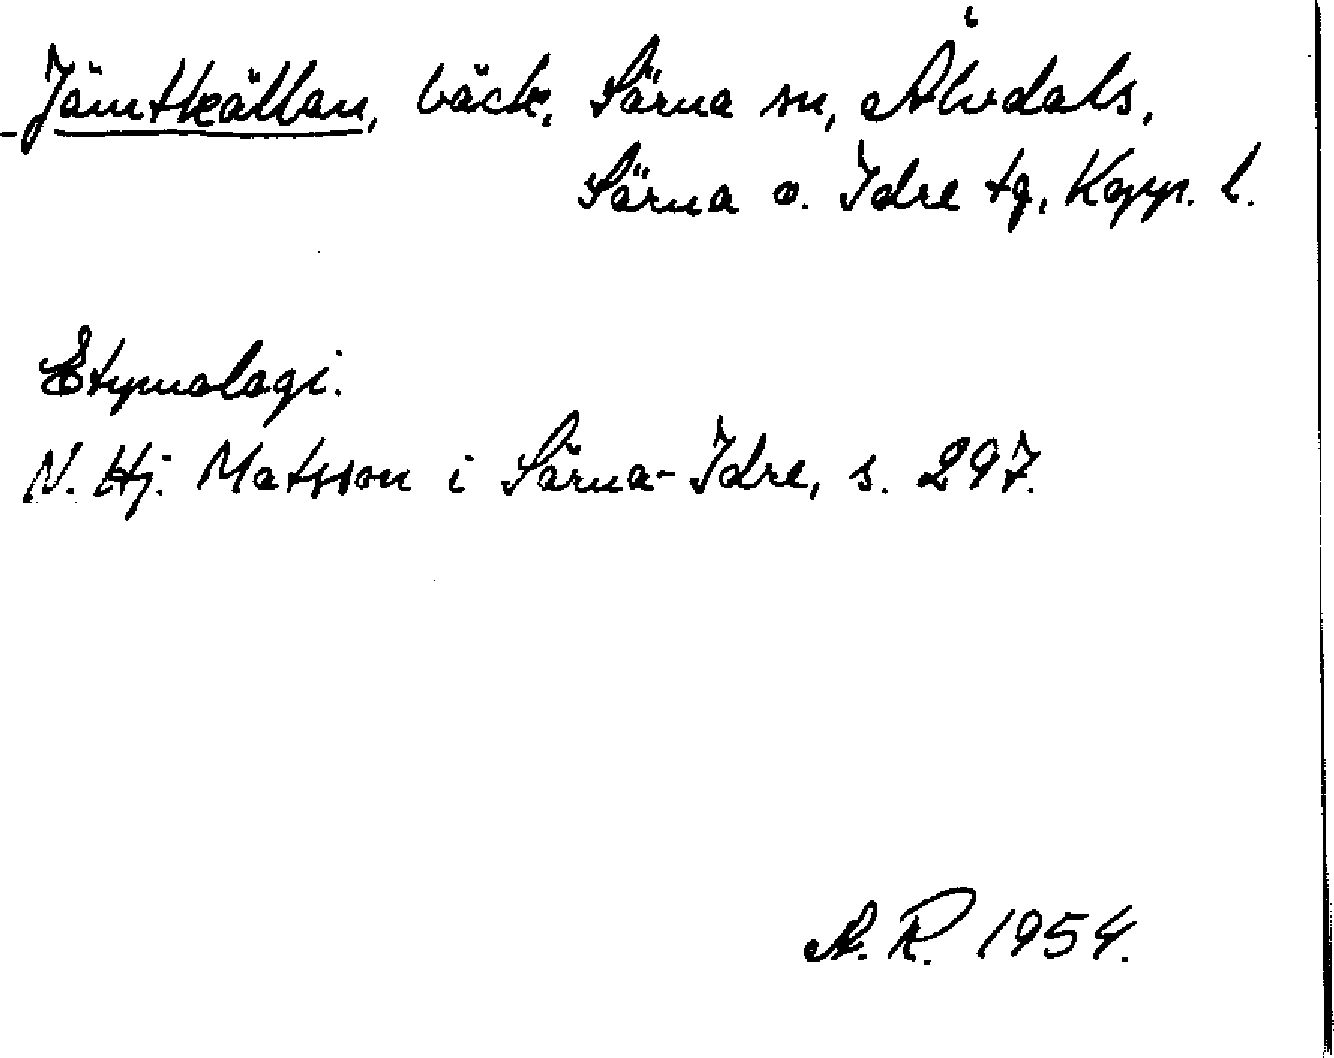 Jämtkällan, bäck, Särna sn, Älvdals,
Särna o. Idre tg, Kopp. l.
Etymologi.
N. Hj. Matsson i Särna-Idre, s. 297.
A. R. 1954.